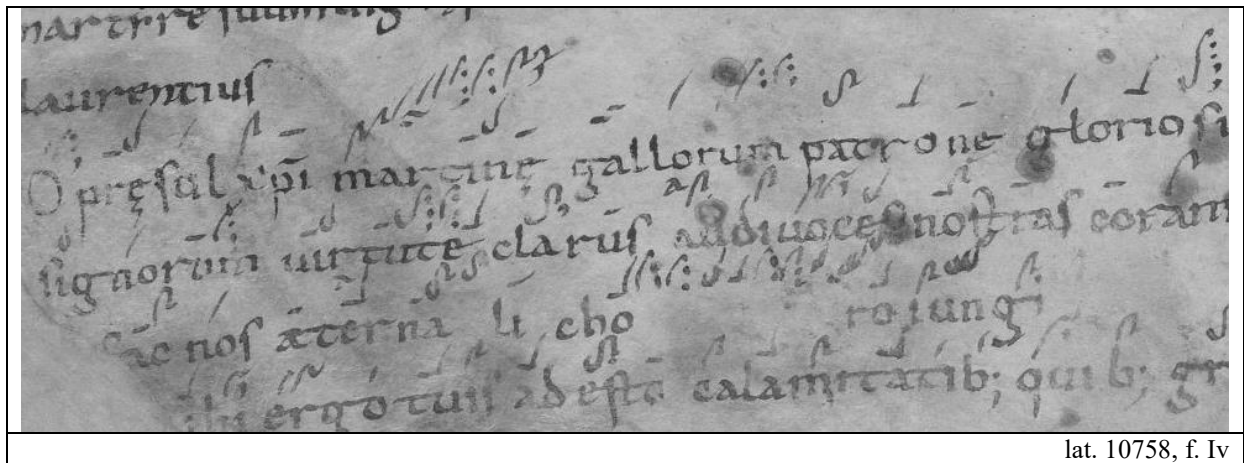 martire iu
laurentius
O pręsul xp̄i martine gallorum patrone gloriosi
signorum uirtute clarus audi uoces nostras coram
fac nos aeterna li choro iungi
ergo tuis adesto calamitatib; quib; gr
lat. 10758, f. Iv